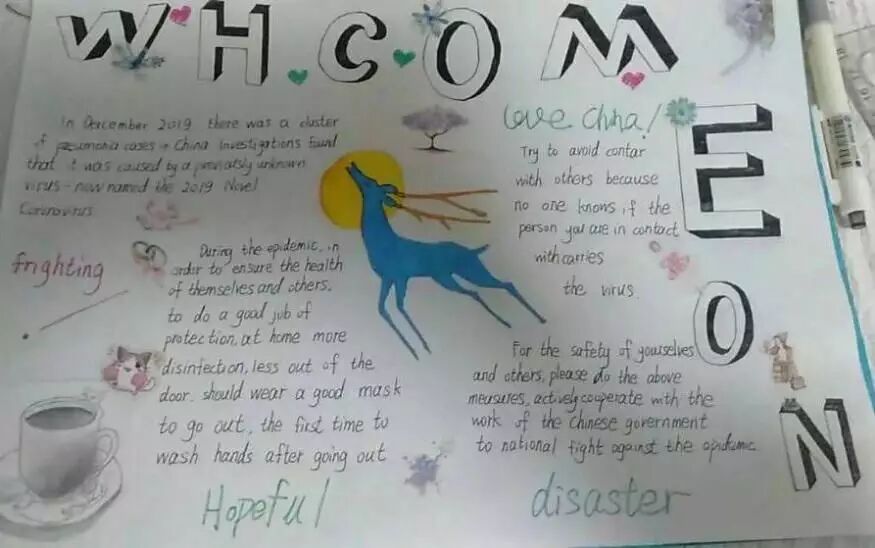 W H . C . O M
E O N
In Dercember 2019 there was a cluster
of pneumonia cases in China Investigations found
that it was caused by a previously unknown
virus - now named the 2019 Novel
Coronavirus
frighting
During the epidemic, in
order to ensure the health
of themselves and others.
to do a good job of
protection, at home more
disinfection, less out of the
door. should wear a good mask
to go out, the first time to
wash hands after going out
Hopeful
Love China!
Try to avoid contar
with others because
no one knows if the
person you are in contact
with carries
the virus.
For the safety of yourselves
and others, please do the above
measures, actively cooperate with the
work of the Chinese government
to national fight against the epidemic
disaster